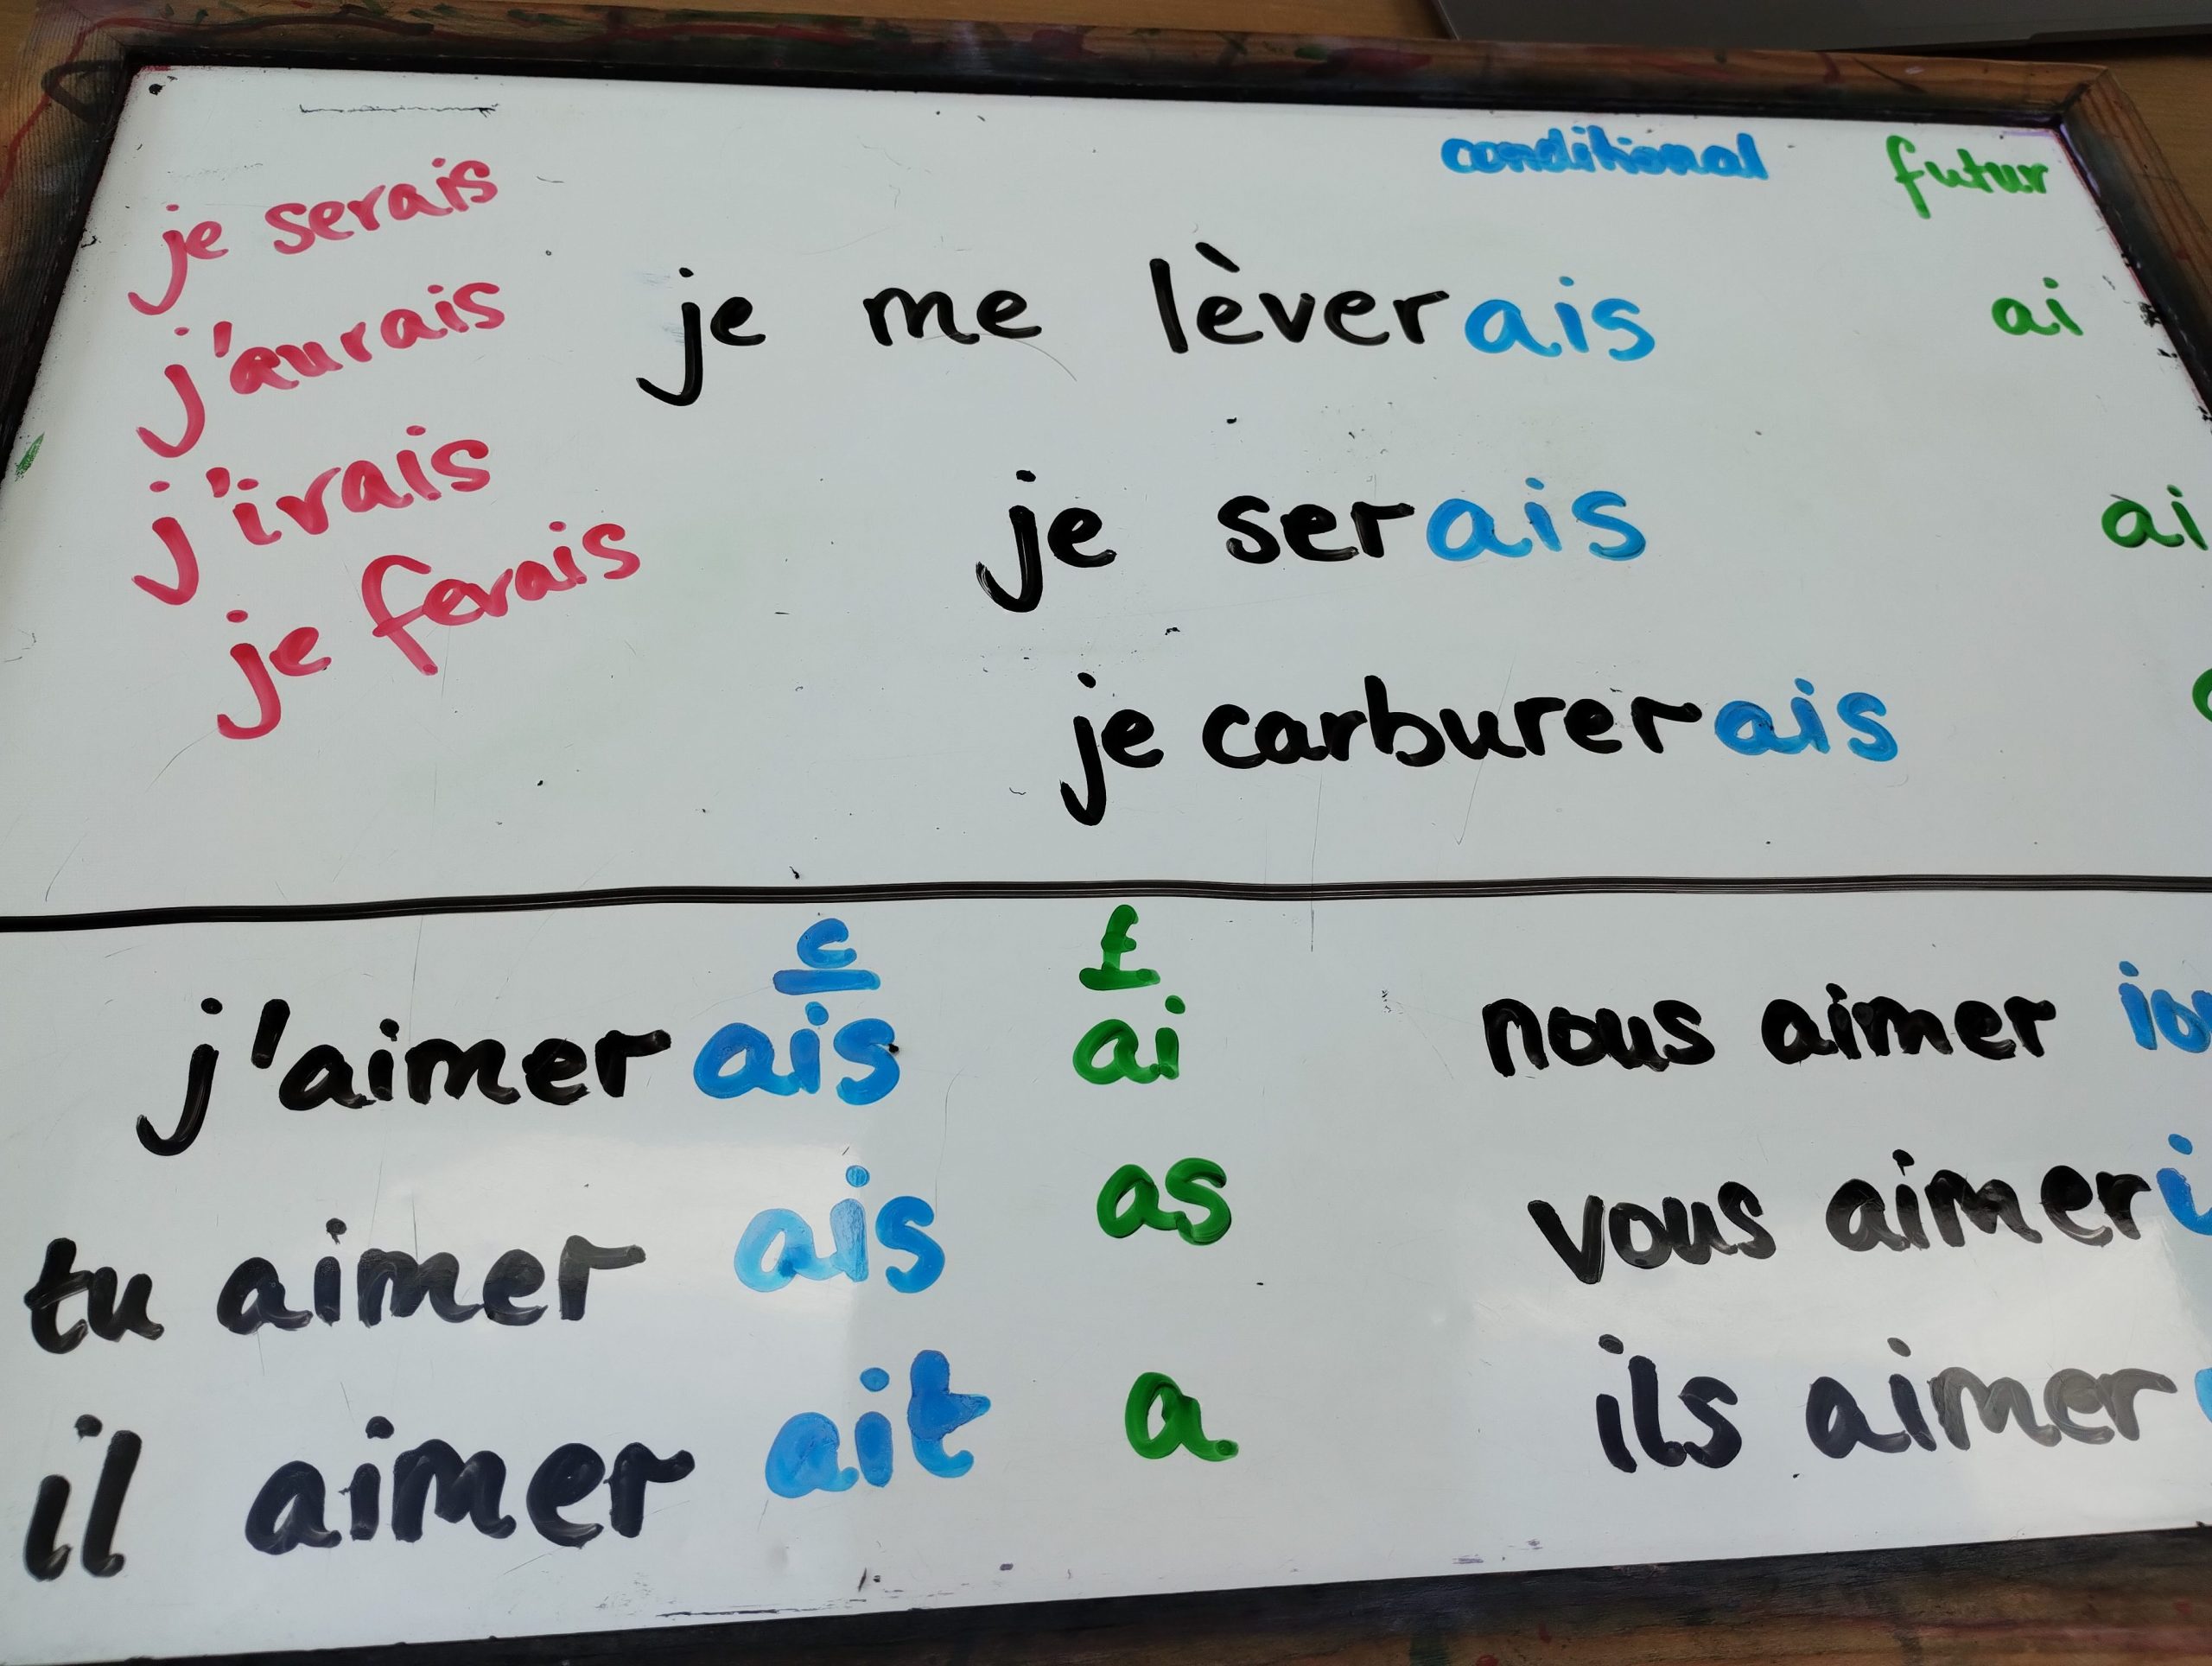 conditional futur
je serais
j'aurais
j'irais
je ferais
je me lèverais ai
je serais ai
je carburerais
c f
j'aimerais ai
tu aimer ais as
il aimer ait a
nous aimer
vous aimer
ils aimer